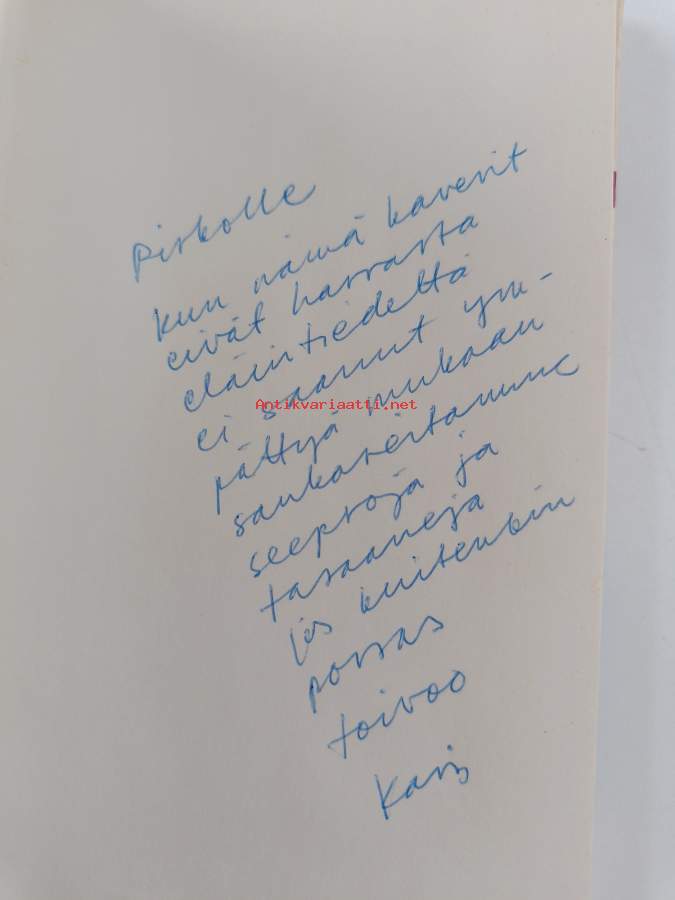 Pirkolle
kun nämä kaverit
eivät harrasta
eläintiedettä
ei saanut ym-
pättyä mukaan
Antikvariaatti.net
seeproja ja
jos kuitenkin
porras
toivoo
Kari